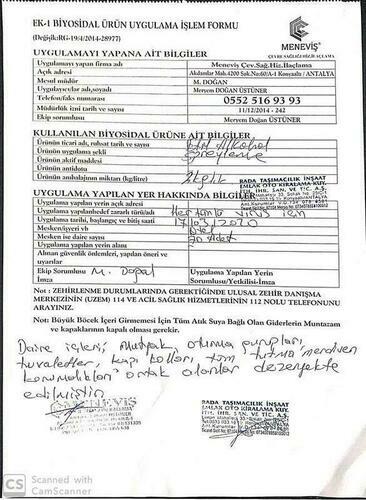 EK-1 BİYOSİDAL ÜRÜN UYGULAMA İŞLEM FORMU
(Değişik:RG-19/4/2014-28977)
MENEVİŞ
ÇEVRE SAĞLIĞI HİZM.İLAÇLAMA
UYGULAMAYI YAPANA AİT BİLGİLER
Uygulamayı yapan firma adı Meneviş Çev.Sağ.Hiz.İlaçlama
Açık adresi Akdamlar Mah.4200 Sok.No:60/A-1 Konyaaltı / ANTALYA
Mesul müdür M. DOĞAN
Uygulayıcılar adı,soyadı Meryem Doğan ÜSTÜNER
Telefon/faks numarası 0552 516 93 93
Müdürlük izni tarih ve sayısı 11/12/2014 - 242
Ekip sorumlusu Meryem Doğan ÜSTÜNER
KULLANILAN BİYOSİDAL ÜRÜNE AİT BİLGİLER
Ürünün ticari adı, ruhsat tarih ve sayısı Alkohol
Ürünün uygulama şekli Spreyleme
Ürünün aktif maddesi
Ürünün antidotu
Ürünün ambalajının miktarı (kg/litre)
RADA TAŞIMACILIK İNŞAAT
EMLAK OTO KİRALAMA KUY.
İTH. İHR. SAN. VE TİC. A.Ş.
UYGULAMA YAPILAN YER HAKKINDA BİLGİLER
Uygulama yapılan yerin açık adresi
Uygulama yapılan hedef zararlı türü/adı Her türlü virüs için
Uygulama tarihi, başlangıç ve bitiş saati 17/03/2020
Mesken/işyeri vb Otel
Mesken ise daire sayısı
Uygulama yapılan yerin alanı
Alınan güvenlik önlemleri, yapılan öneri ve
uyarılar
Ekip Sorumlusu M. Doğan Uygulama Yapılan Yerin
İmza Sorumlusu/Yetkilisi-İmza
Not : ZEHİRLENME DURUMLARINDA GEREKTİĞİNDE ULUSAL ZEHİR DANIŞMA
MERKEZİNİN (UZEM) 114 VE ACİL SAĞLIK HİZMETLERİNİN 112 NOLU TELEFONUNU
ARAYINIZ.
Not: Büyük Böcek İçeri Girmemesi İçin Tüm Atık Suya Bağlı Olan Giderlerin Muntazam
ve kapaklarının kapalı olması gerekir.
Daire içleri, Mutfak, oturma gurupları,
tuvaletler, kapı kolları, tüm tutma merdiven
ortak alanlar dezenfekte
edilmiştir
MENEVİŞ
RADA TAŞIMACILIK İNŞAAT
EMLAK OTO KİRALAMA KUY.
İTH. İHR. SAN. VE TİC. A.Ş.
CS Scanned with
CamScanner